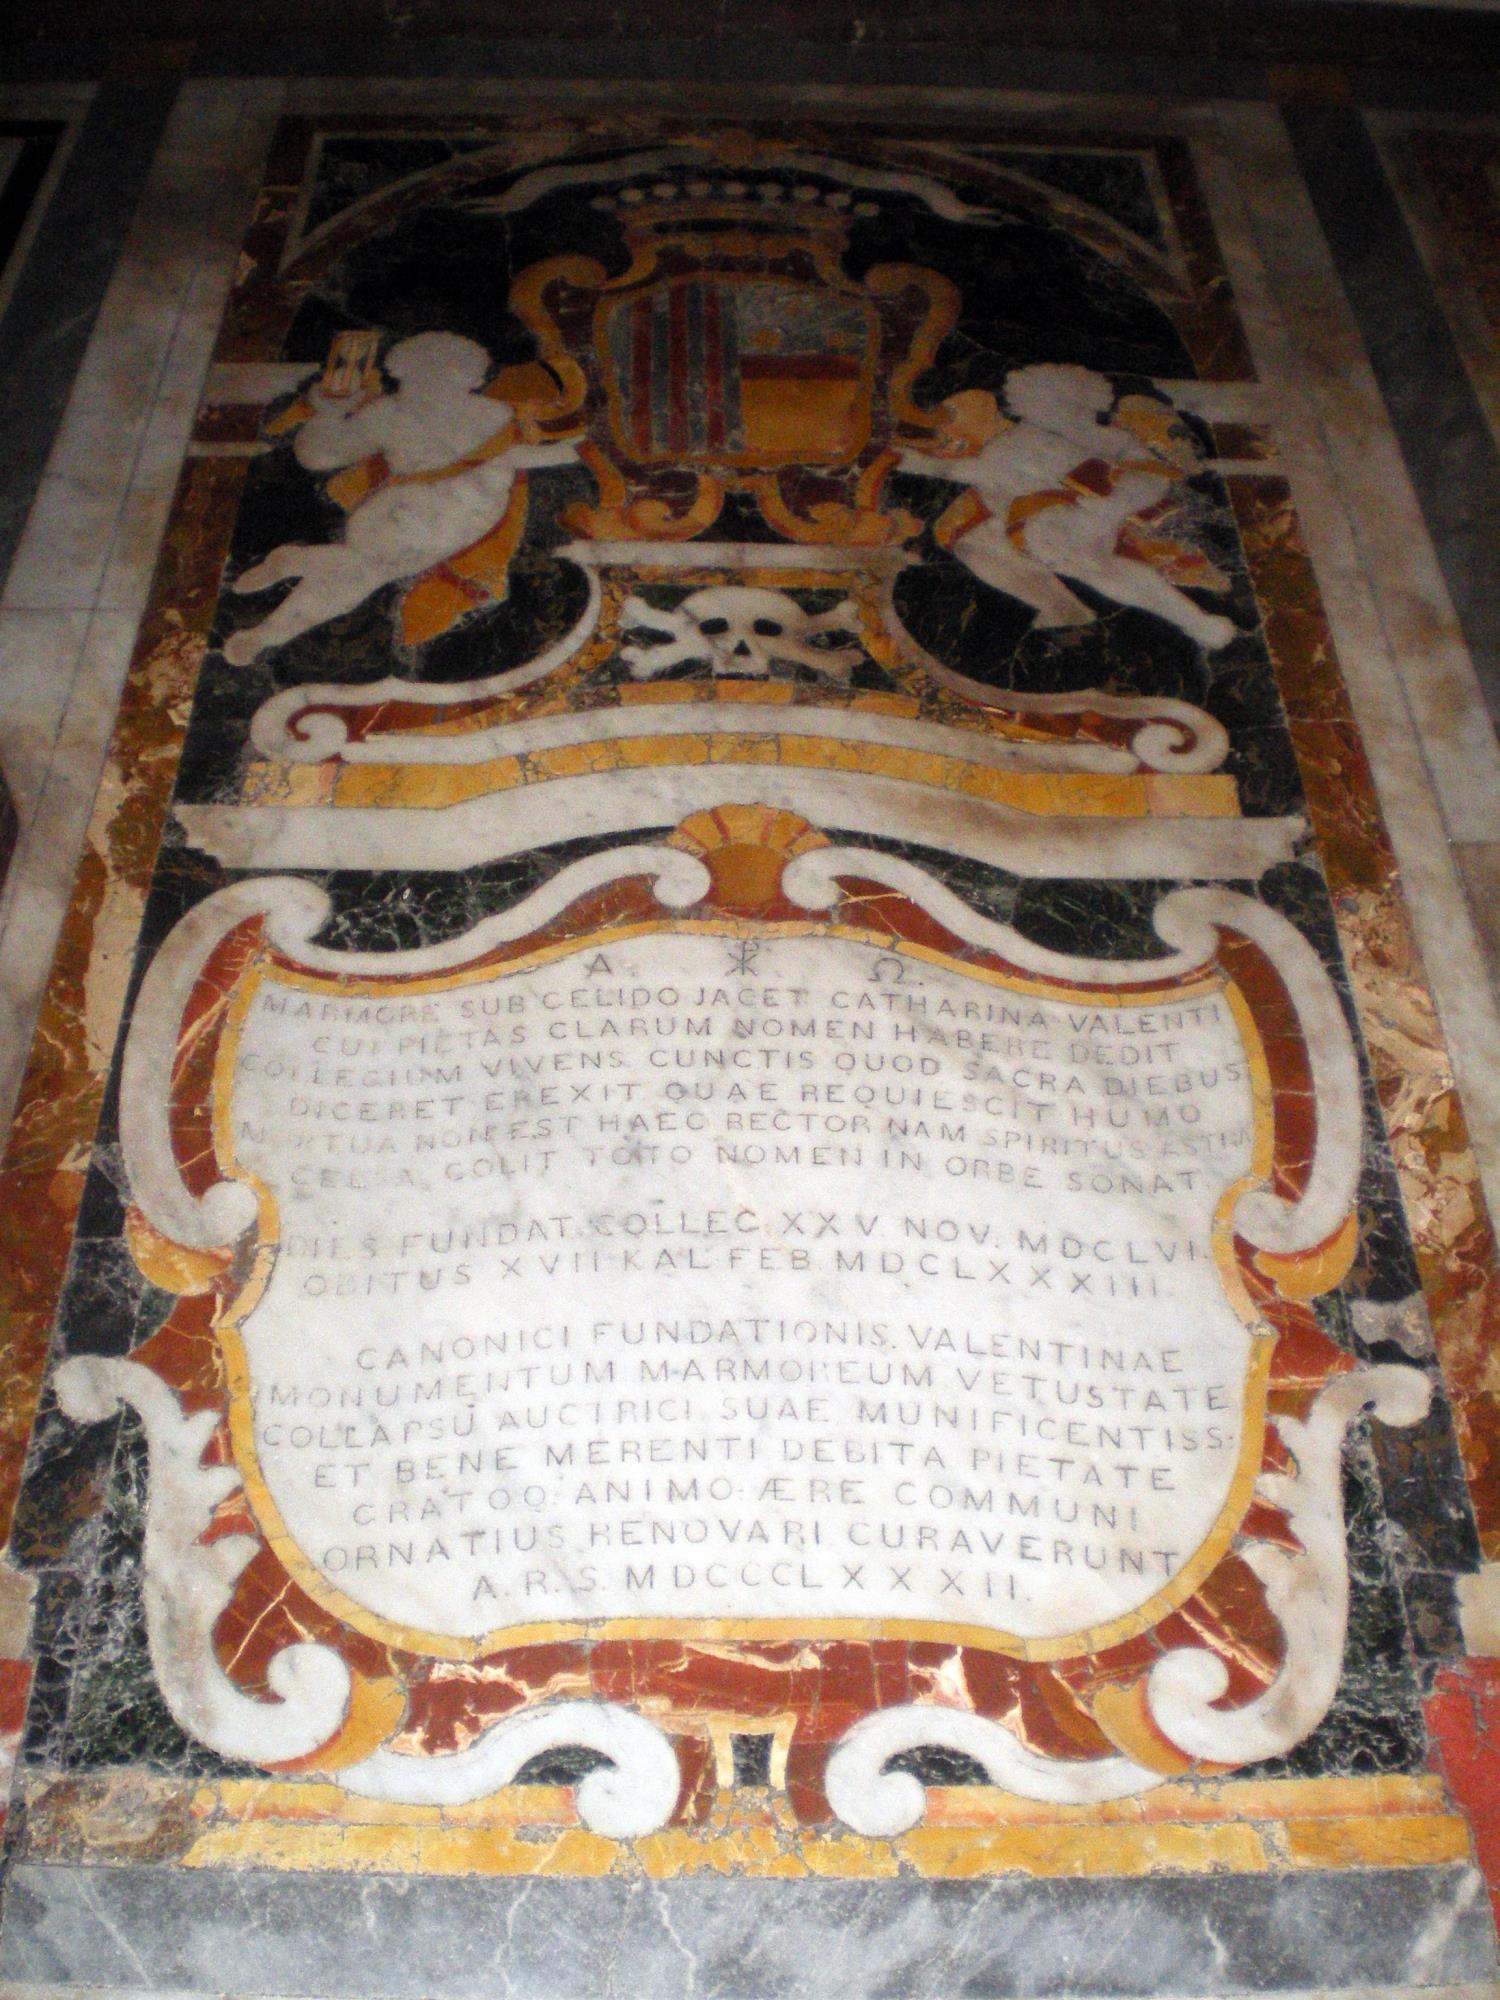 A. ☧. Ω.
MARMORE SUB CELIDO JACET CATHARINA VALENTI
CUI PIETAS CLARUM NOMEN HABERE DEDIT
COLLEGIUM VIVENS CUNCTIS QUOD SACRA DIEBUS
DICERET EREXIT QUAE REQUIESCIT HUMO
MORTUA NON EST HAEC RECTOR NAM SPIRITUS ASTRA
CELSA COLIT TOTO NOMEN IN ORBE SONAT
DIES FUNDAT. COLLEG. XXV. NOV. MDCLVI.
OBITUS XVII KAL. FEB. MDCLXXXIIII.
CANONICI FUNDATIONIS VALENTINAE
MONUMENTUM MARMOREUM VETUSTATE
COLLAPSU AUCTRICI SUAE MUNIFICENTISS.
ET BENE MERENTI DEBITA PIETATE
GRATOQ. ANIMO ÆRE COMMUNI
ORNATIUS RENOVARI CURAVERUNT
A. R. S. MDCCCLXXXII.